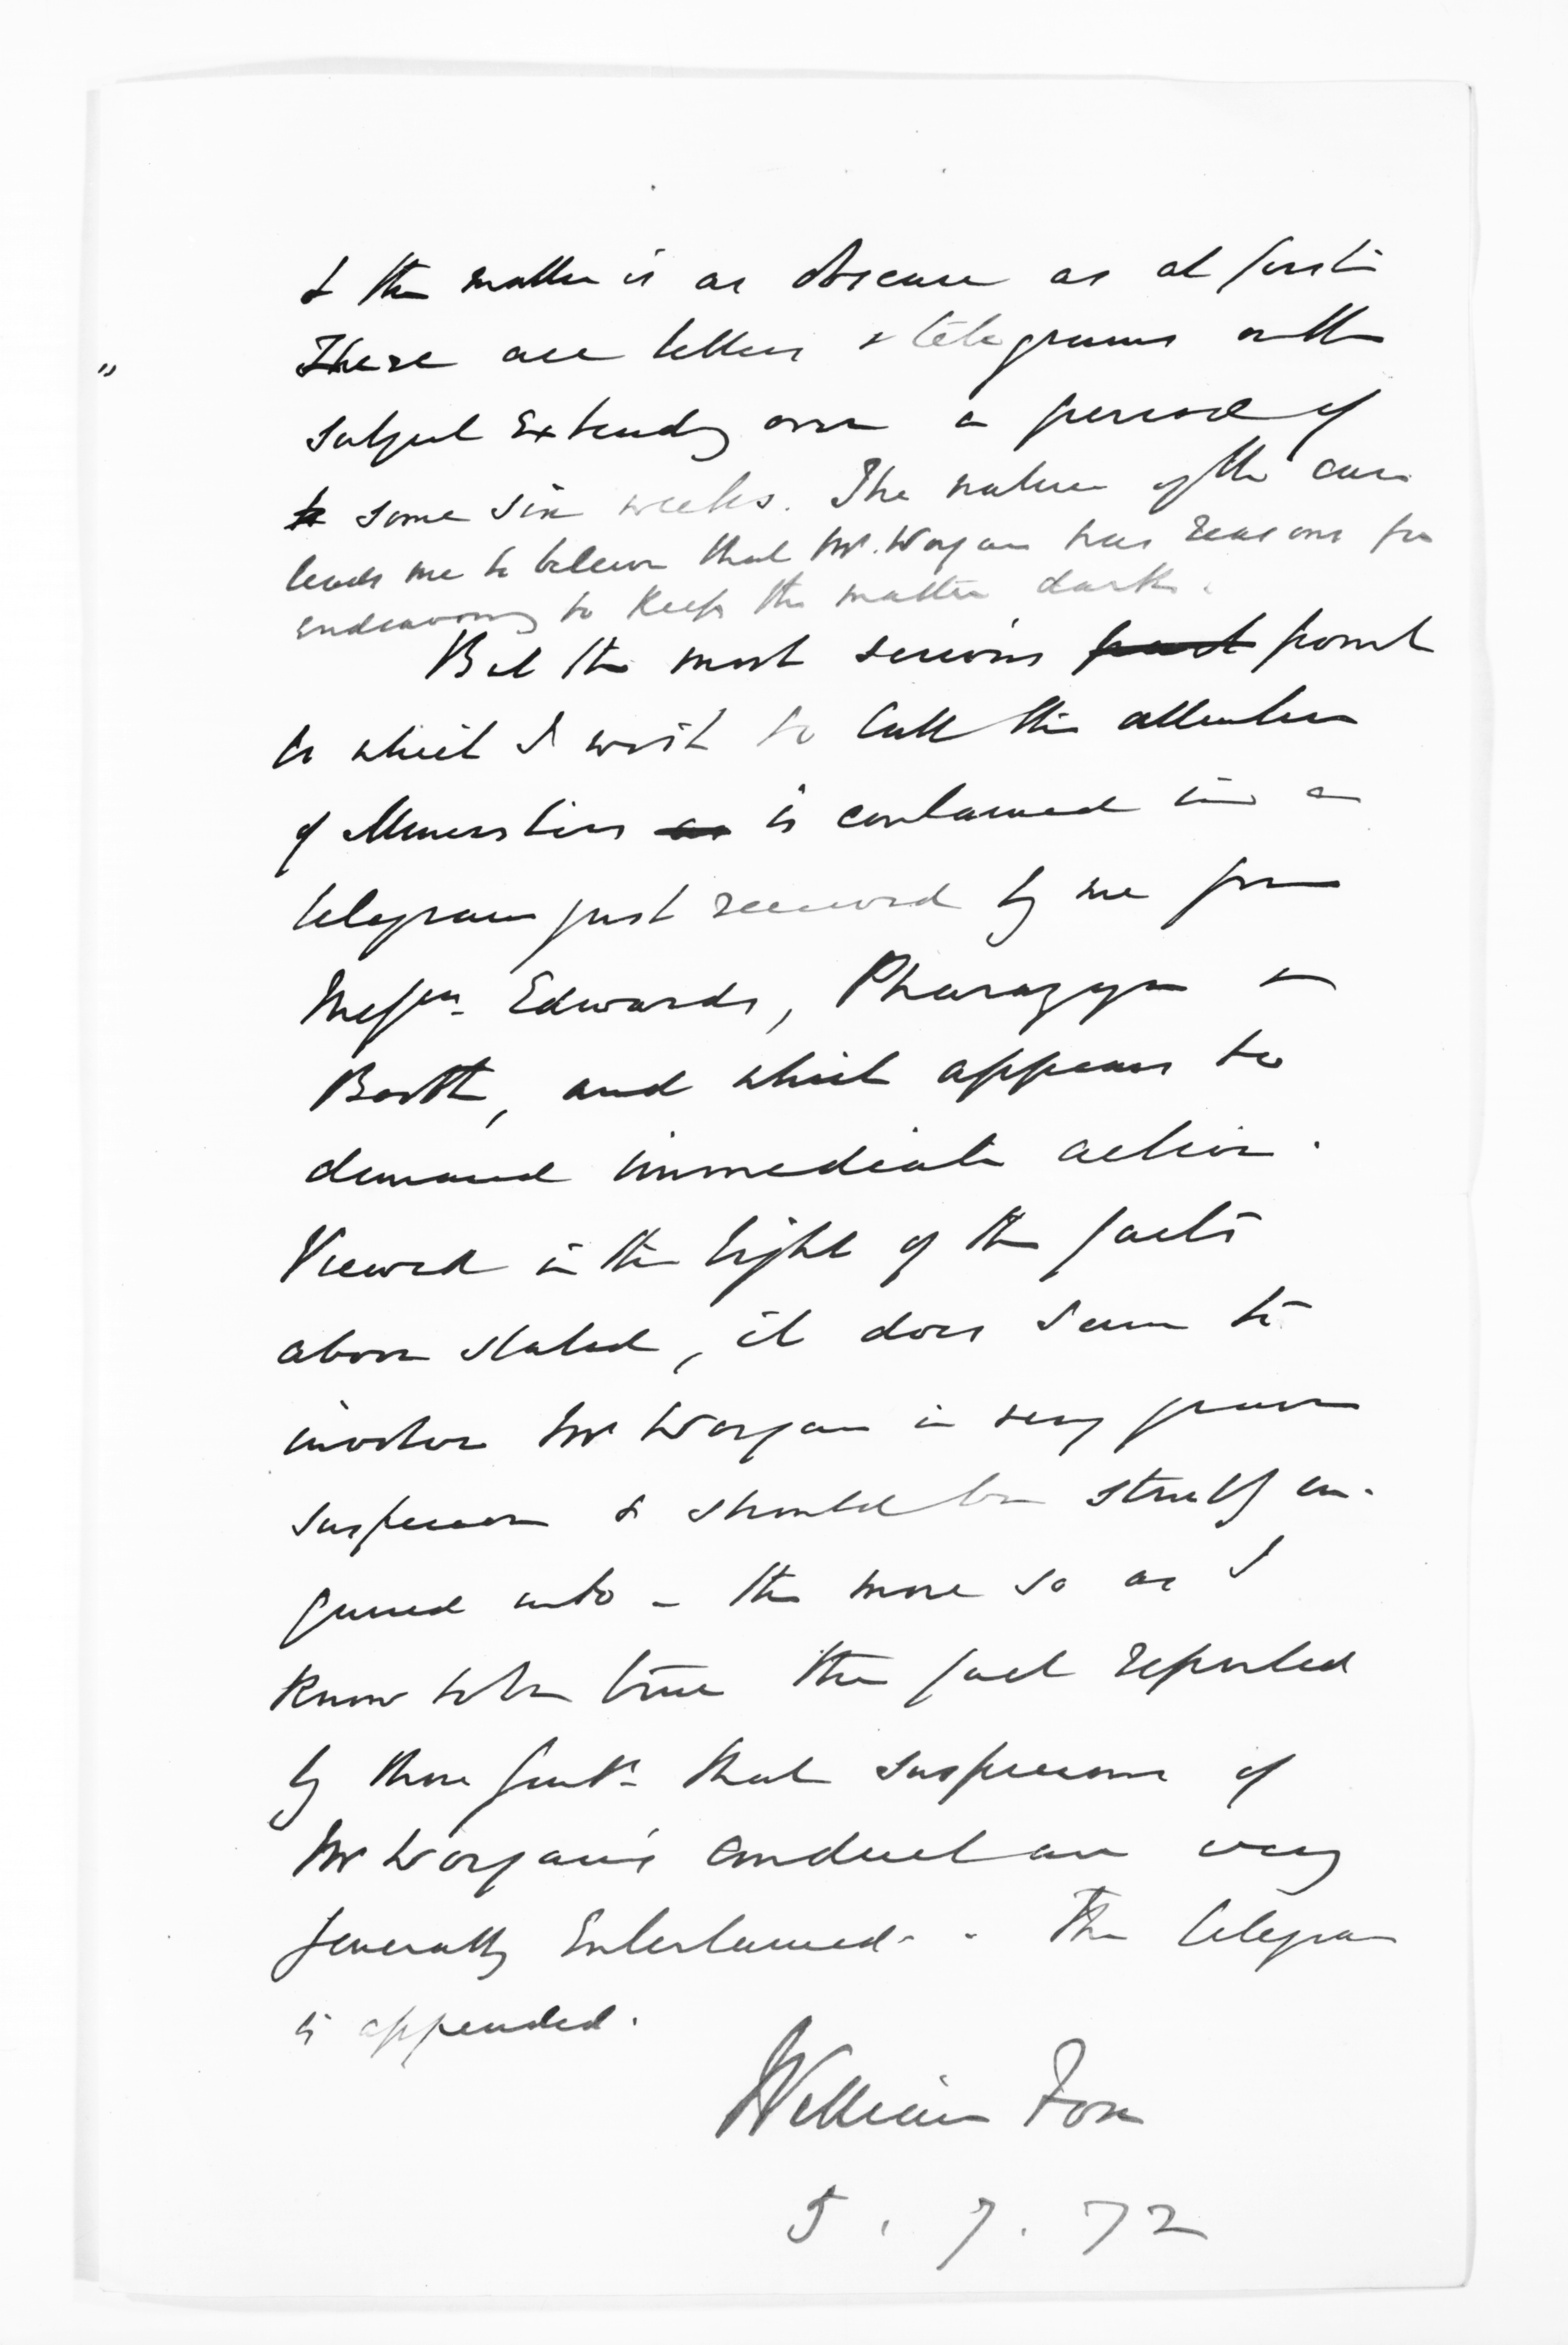 & the matter is as obscure as at first.
There are letters & telegrams on the
subject extending over a period of
to some six weeks. The nature of the case
leads me to believe that Mr. Worgan has reasons for
endeavoring to keep the matter dark.
But the most serious part point
to which I wish to call the attention
of Ministers as is contained in a
telegram just received by me from
Messrs. Edwards, Pharazyn &
Booth, and which appears to
demand immediate action.
Viewed in the light of the facts
above stated, it does seem to
involve Mr Worgan in very grave
suspicion & should be strictly en-
quired into - the more so as I
know to be true the fact reported
by those Gentn. that suspicions of
Mr Worgan's conduct are very
generally entertained. - The telegram
is appended.
William Fox
5. 7. 72